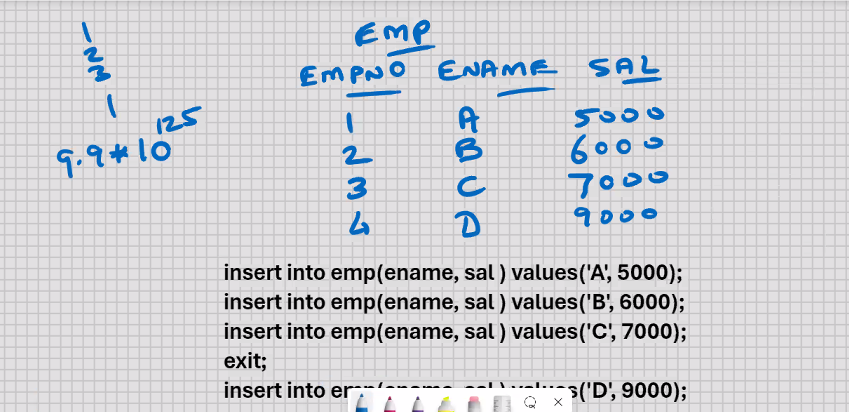 1
2
3
1
9.9*10^125
EMP
EMPNO ENAME SAL
1 A 5000
2 B 6000
3 C 7000
4 D 9000
insert into emp(ename, sal ) values('A', 5000);
insert into emp(ename, sal ) values('B', 6000);
insert into emp(ename, sal ) values('C', 7000);
exit;
insert into 's('D', 9000);